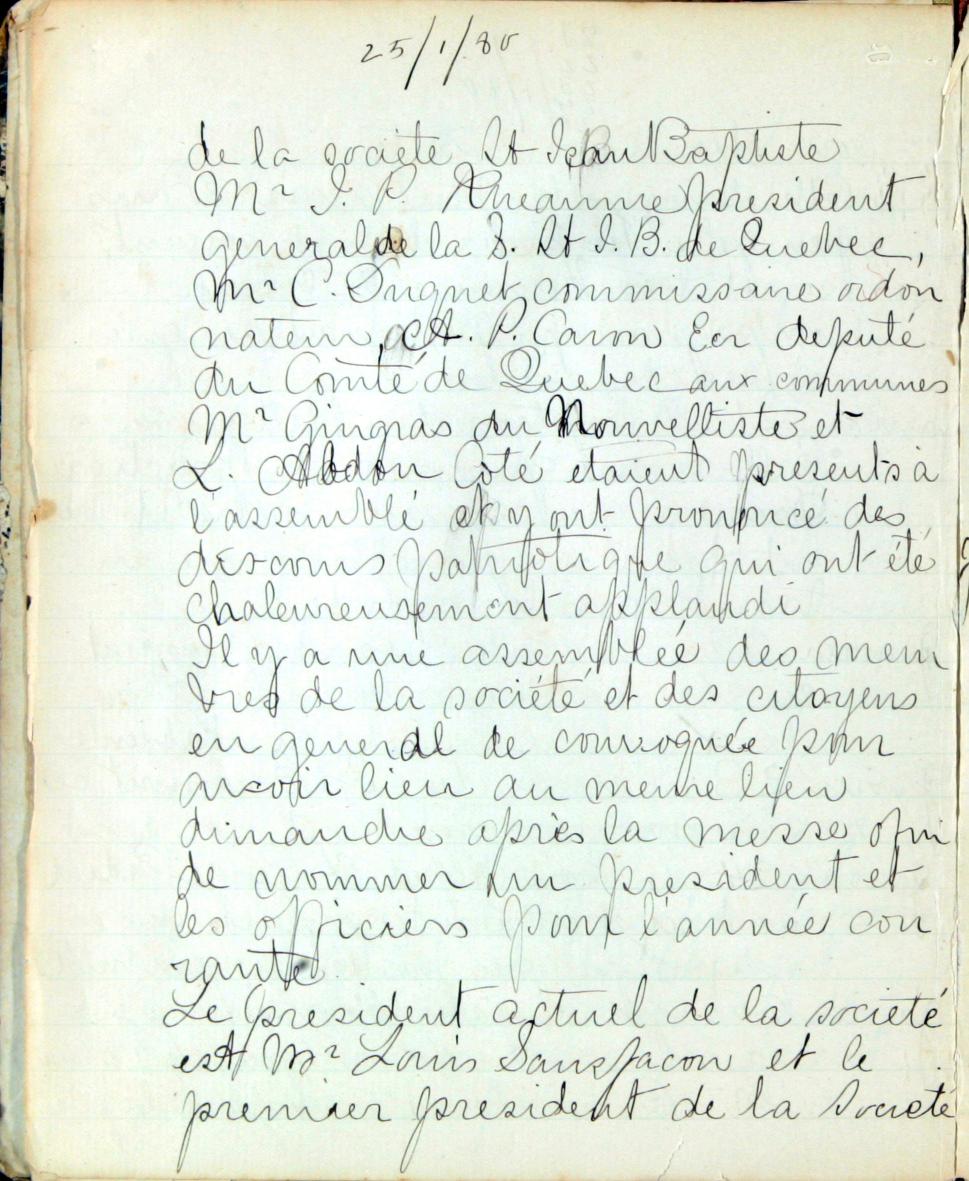 25/1/80
de la societe St Jean Baptiste
Mr J. P. Rheaume president
general de la S. St J. B. de Quebec,
Mr C. Duquet, commissaire ordon
nateur, A. P. Caron Ecr deputé
du Comté de Quebec aux communes
Mr Gingras du Nouvelliste et
L. Abdon Coté etaient presents à
l'assemblé et y ont prononcé des
discours patriotique qui ont été
chaleureusement applaudi
Il y a une assemblée des mem
bres de la société et des citoyens
en general de convoquée pour
avoir lieu au meme lieu
dimanche après la messe afin
de nommer un president et
les officiers pour l'année cou
rante
Le president actuel de la societé
est Mr Louis Sansfacon et le
premier president de la Societé